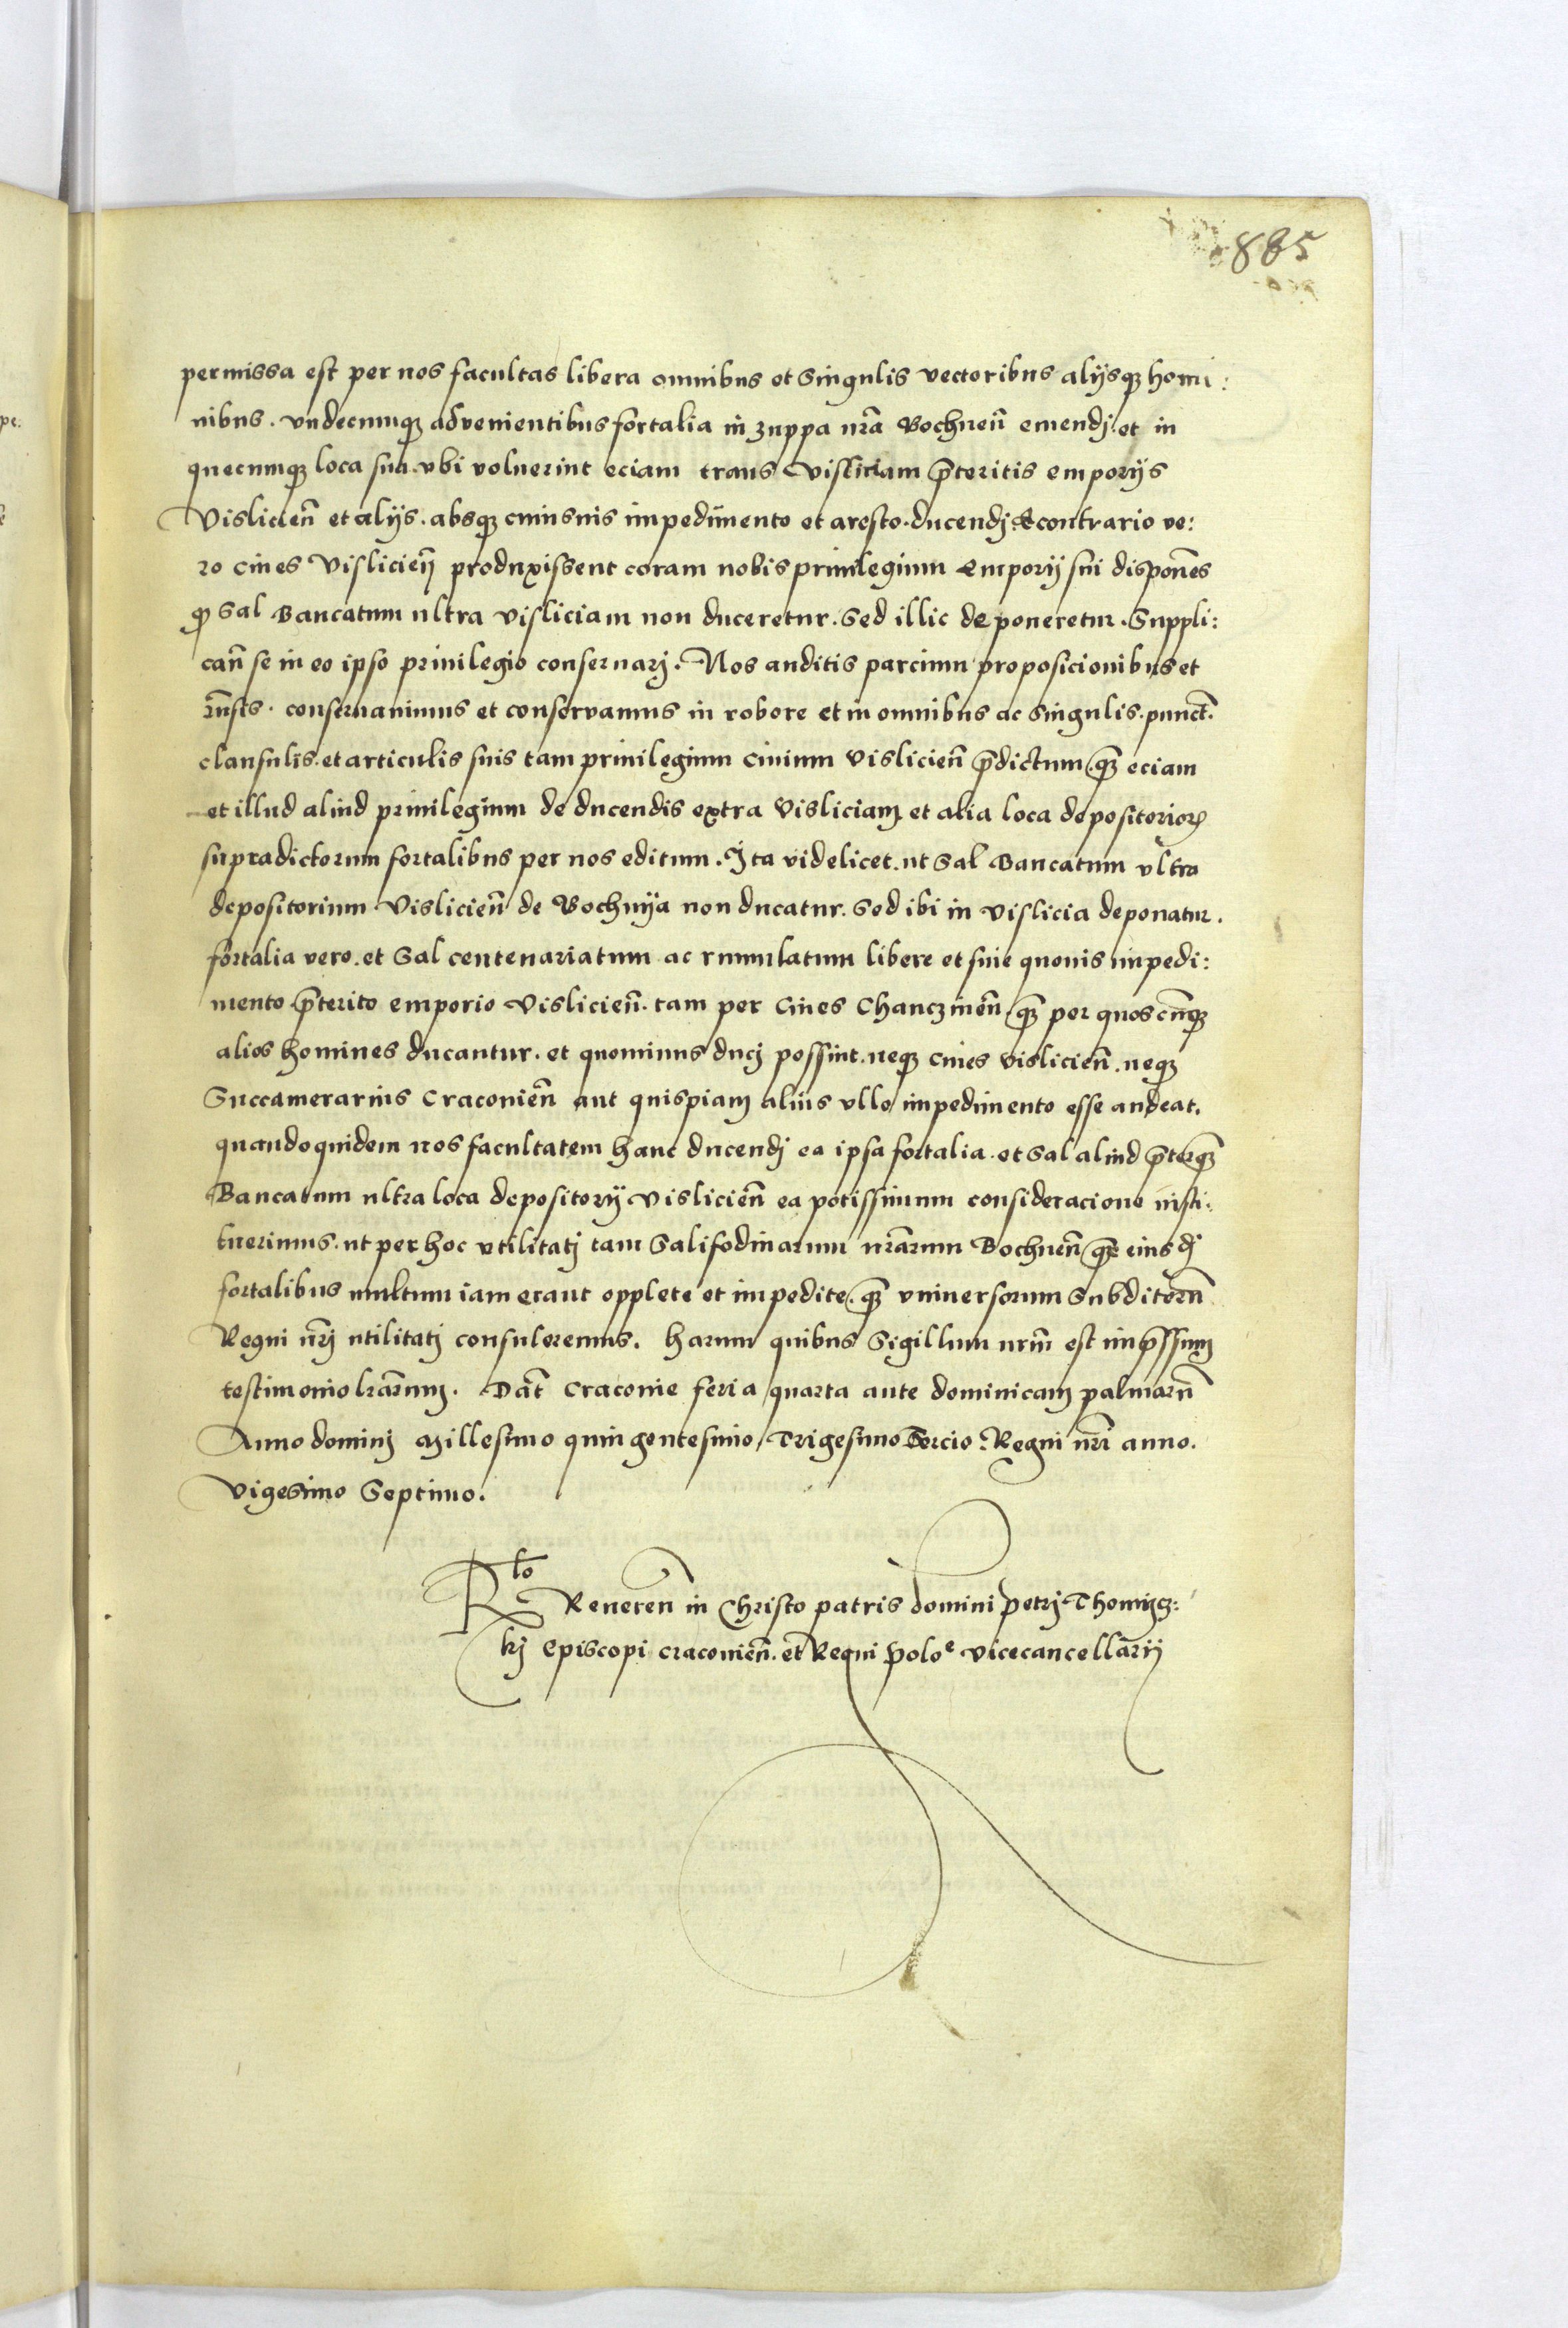 885
permissa est per nos facultas libera omnibus et singulis vectoribus alijsqꝫ homi:
nibus . vndecumqꝫ advenientibus fortalia in zuppa nrā Bochneñ emendj . et in
quecumqꝫ loca sua . vbi voluerint eciam trans Visliciam p̄teritis emporijs
Vislicieñ et alijs . absqꝫ cuiusuis impedimento et aresto . ducendj Econtrario ve:
ro ciues Vislicieñ produxissent coram nobis priuilegium Emporij sui disponēs
qꝫ Sal Bancatum ultra Visliciam non duceretur . Sed illic deponeretur . Suppli:
cañ se in eo ipso priuilegio conseruarj . Nos auditis parcium proposicionibus et
rn̄sis . conseruauimus et conservamus in robore et in omnibus ac singulis . punct̄ .
clausulis . et articulis suis tam priuilegium ciuium Vislicieñ p̄dictum qꝫ̄ eciam
et illud aliud priuilegium de ducendis extra Visliciam et alia loca depositorioꝝ
supradictorum fortalibus per nos editum . Ita videlicet . ut Sal Bancatum vltra
depositorium Vislicieñ de Bochnija non ducatur . Sed ibi in Vislicia deponatur .
fortalia vero . et Sal centenariatum ac rumulatum libere et sine quouis impedi:
mento p̄terito emporio Vislicieñ . tam per Ciues Chanczineñ qꝫ̄ per quoscūqꝫ
alios homines ducantur . et quominus ducj possint . neqꝫ ciues Vislicieñ . neqꝫ
Succamerarius Craconieñ aut quispiam alius vllo impedimento esse audeat .
quandoquidem nos facultatem hanc ducendj ea ipsa fortalia . et Sal aliud p̄terqꝫ̄
Bancatum ultra loca depositorij Vislicieñ ea potissimum consideracione insti:
tuerimus . ut per hoc vtilitatj tam Salifodinarum nr̄arum Bochneñ qꝫ̄ eiusdj
fortalibus multum iam erant opplete et impedite . qꝫ̄ vniuersorum Subditorū
Regni nr̄j utilitatj consuleremus . harum quibus Sigillum nrm̄ est imp̄ssum
testimonio lrārum . Dat̄ Craconie feria quarta ante dominicam palmarū
Anno dominj Millesimo quingentesimo Trigesimo Tercio . Regni nr̄i anno .
Vigesimo Septimo .
Rlō Reuereñ in Christo patris domini Petrj Thomicz:
kj Episcopi Craconieñ . et Regni Poloᵉ vicecancellarij